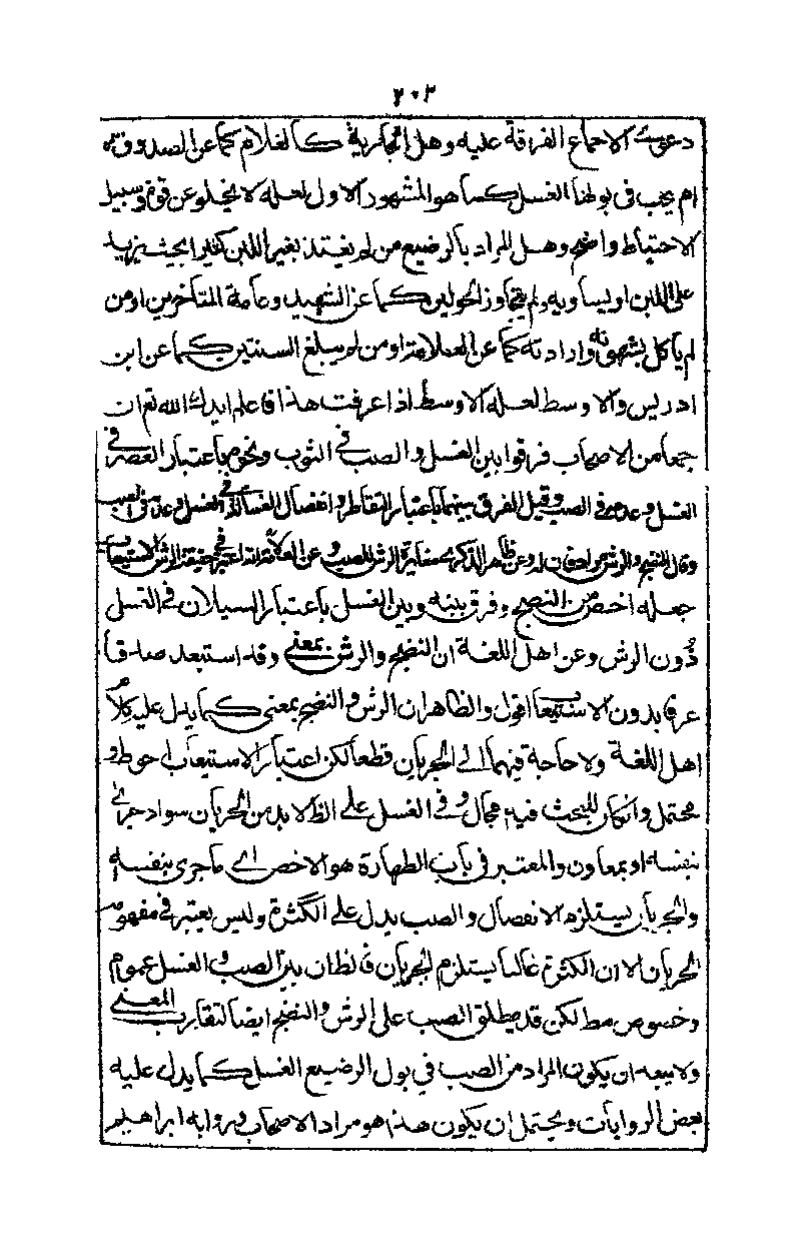 ٢٠٣
دعوى الاجماع الفرقة عليه وهل الجارية كالغلام كما عن الصدوقين
ام يجب فى بولها الغسل كما هو المشهور الاول لعله لا يخلو عن قوة وسبيل
الاحتياط واضح وهل المراد بالرضيع من لم يغتذ بغير اللبن كثيرا بحيث يزيد
على اللبن او يساويه ولم يتجاوز الحولين كما عن الشهيد وعامة المتأخرين او من
لم يأكل بشهوته وارادته كما عن العلامة او من لم يبلغ السنتين كما عن ابن
ادريس والاوسط لعله الاوسط اذا عرفت هذا فاعلم ايدك الله تع ان
جمعا من الاصحاب فرقوا بين الغسل والصب فى الثوب ونحوه باعتبار العصر فى
الغسل وعدمه فى الصب وقيل الفرق بينهما باعتبار التقاطر وانفصال الغسالة فى الغسل وعدمه فى الصب
وقال النضح والرش وعن ظاهر الذكرى مغايرة الرش للصب وعن العلامة انه اعتبر فى حقيقة الرش الاستيعاب
جعله اخص من النضح وفرق بينه وبين الغسل باعتبار السيلان فى الغسل
دون الرش وعن اهل اللغة ان النضح والرش بمعنى وقد استبعد صدقها
عرفا بدون الاستيعاب اقول والظاهر ان الرش والنضح بمعنى كما يدل عليه كلام
اهل اللغة ولا حاجة فيهما الى الجريان قطعا لكن اعتبار الاستيعاب احوط و
محتمل وان كان للبحث فيه مجال وفى الغسل على الظ لا بد من الجريان سواء جرى
بنفسه او بمعاون والمعتبر فى باب الطهارة هو الاخص اى ما جرى بنفسه
والجريان يستلزم الانفصال والصب يدل على الكثرة وليس يعتبر فى مفهومه
الجريان الا ان الكثرة غالبا يستلزم الجريان فالظ ان بين الصب والغسل عموم
وخصوص مط لكن قد يطلق الصب على الرش والنضح ايضا لتقارب المعنى
ولا يبعد ان يكون المراد من الصب فى بول الرضيع الغسل كما يدل عليه
بعض الروايات ويحتمل ان يكون هذا هو مراد الاصحاب ورواية ابراهيم